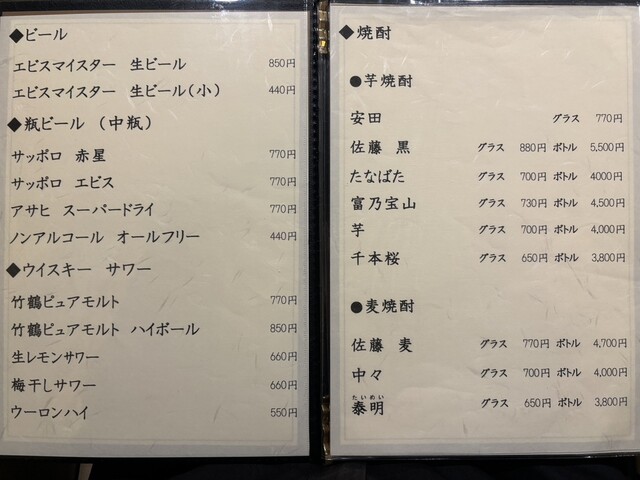 ◆ビール
エビスマイスター 生ビール 850円
エビスマイスター 生ビール(小) 440円
◆瓶ビール (中瓶)
サッポロ 赤星 770円
サッポロ エビス 770円
アサヒ スーパードライ 770円
ノンアルコール オールフリー 440円
◆ウイスキー サワー
竹鶴ピュアモルト 770円
竹鶴ピュアモルト ハイボール 850円
生レモンサワー 660円
梅干しサワー 660円
ウーロンハイ 550円
◆焼酎
●芋焼酎
安田 グラス 770円
佐藤 黒 グラス 880円 ボトル 5,500円
たなばた グラス 700円 ボトル 4000円
富乃宝山 グラス 730円 ボトル 4,500円
芋 グラス 700円 ボトル 4,000円
千本桜 グラス 650円 ボトル 3,800円
●麦焼酎
佐藤 麦 グラス 770円 ボトル 4,700円
中々 グラス 700円 ボトル 4,000円
たいめい
泰明 グラス 650円 ボトル 3,800円